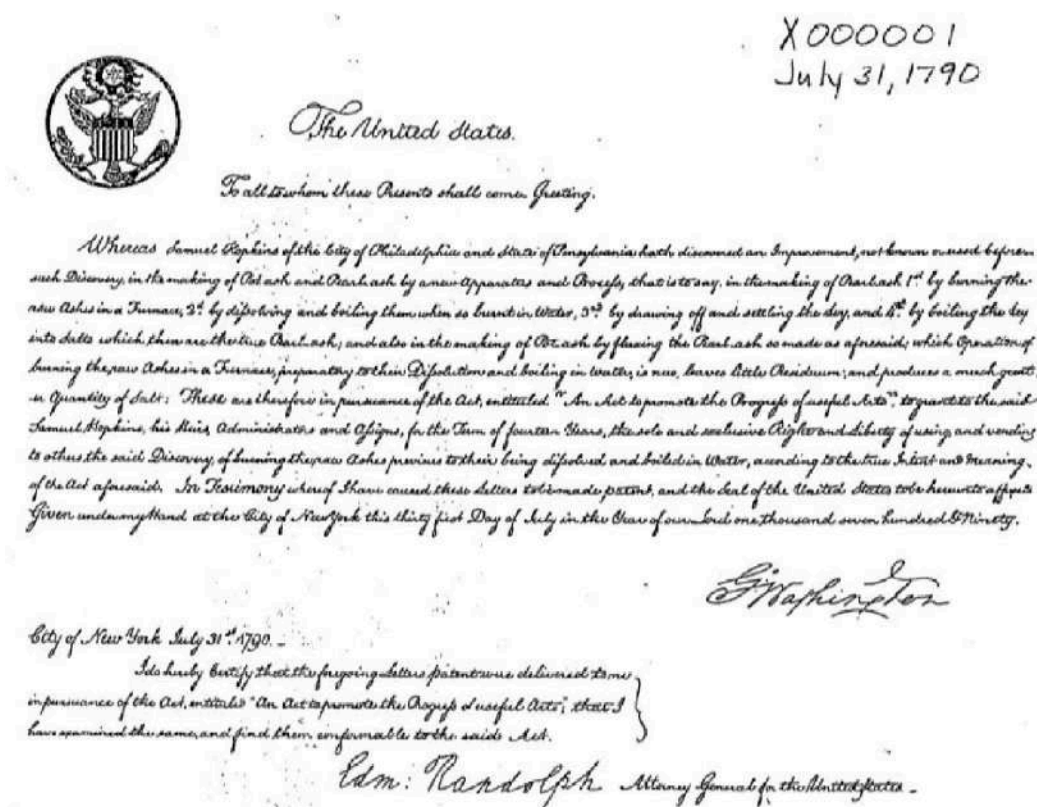 X000001
July 31, 1790
The United States.
To all to whom these Presents shall come, Greeting.
Whereas Samuel Hopkins of the City of Philadelphia and State of Pensylvania hath discovered an Improvement, not known or used before
such Discovery, in the making of Pot ash and Pearl ash by a new Apparatus and Process, that is to say, in the making of Pearl ash 1st by burning the
raw Ashes in a Furnace, 2d by dissolving and boiling them when so burnt in Water, 3rd by drawing off and settling the Ley, and 4th by boiling the Ley
into Salts which then are the true Pearl ash; and also in the making of Pot ash by fluxing the Pearl ash so made as aforesaid; which Operation of
burning the raw Ashes in a Furnace, preparatory to their Dissolution and boiling in Water, is new, leaves little Residuum; and produces a much great
er Quantity of Salt: These are therefore in pursuance of the Act, entituled "An Act to promote the Progress of useful Arts", to grant to the said
Samuel Hopkins, his Heirs, Administrators and Assigns, for the Term of fourteen Years, the sole and exclusive Right and Liberty of using, and vending
to others the said Discovery, of burning the raw Ashes previous to their being dissolved and boiled in Water, according to the true Intent and Meaning
of the Act aforesaid. In Testimony whereof I have caused these Letters to be made patent, and the Seal of the United States to be hereunto affixed
Given under my Hand at the City of New York this thirty first Day of July in the Year of our Lord one thousand seven hundred & Ninety.
G. Washington
City of New York July 31st 1790.
I do hereby Certify that the foregoing Letters patent were delivered to me
in pursuance of the Act, entituled "An Act to promote the Progress of useful Arts"; that I
have examined the same, and find them conformable to the said Act.
Edm: Randolph Attorney General for the United States.